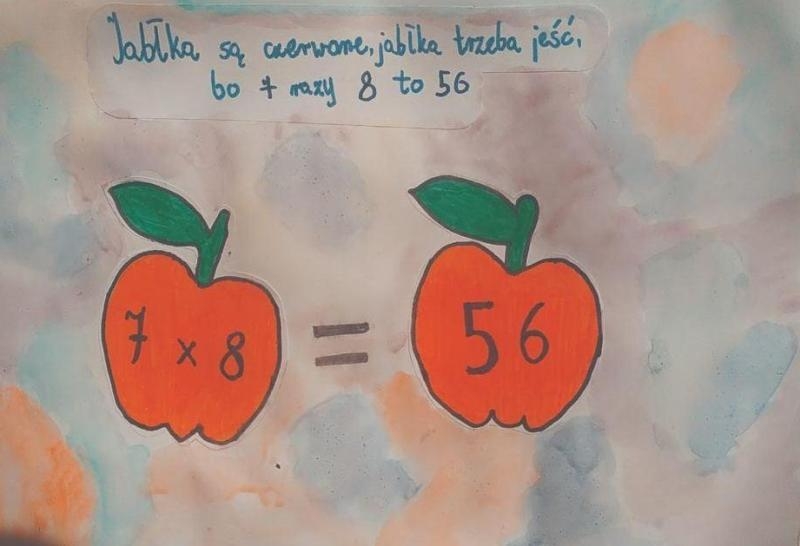 Jabłka są czerwone, jabłka trzeba jeść,
bo 7 razy 8 to 56
7 x 8 = 56